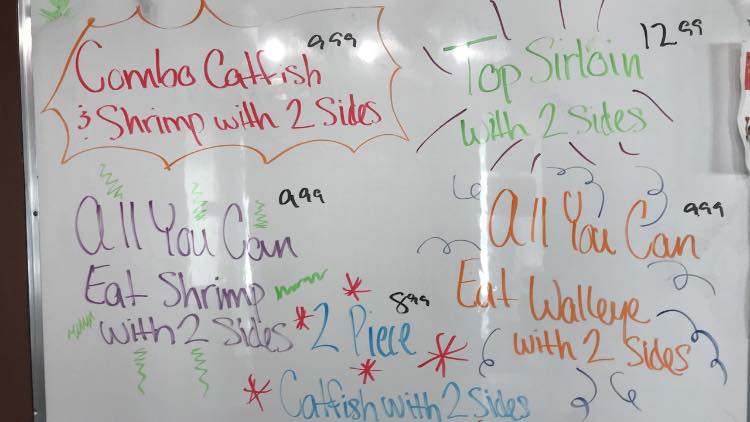 Combo Catfish 9.99
& Shrimp with 2 Sides
Top Sirloin 12.99
with 2 Sides
All You Can 9.99
Eat Shrimp
with 2 Sides
All You Can 9.99
Eat Walleye
with 2 Sides
2 Piece 8.99
Catfish with 2 Sides